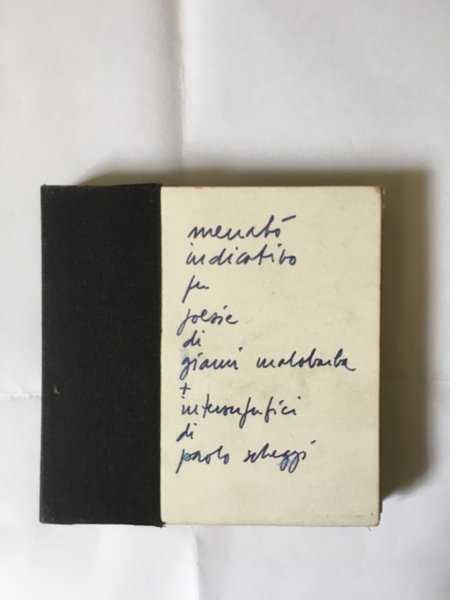 menabò
indicativo
per
poesie
di
gianni malabarba
+
intersuperfici
di
paolo scheggi